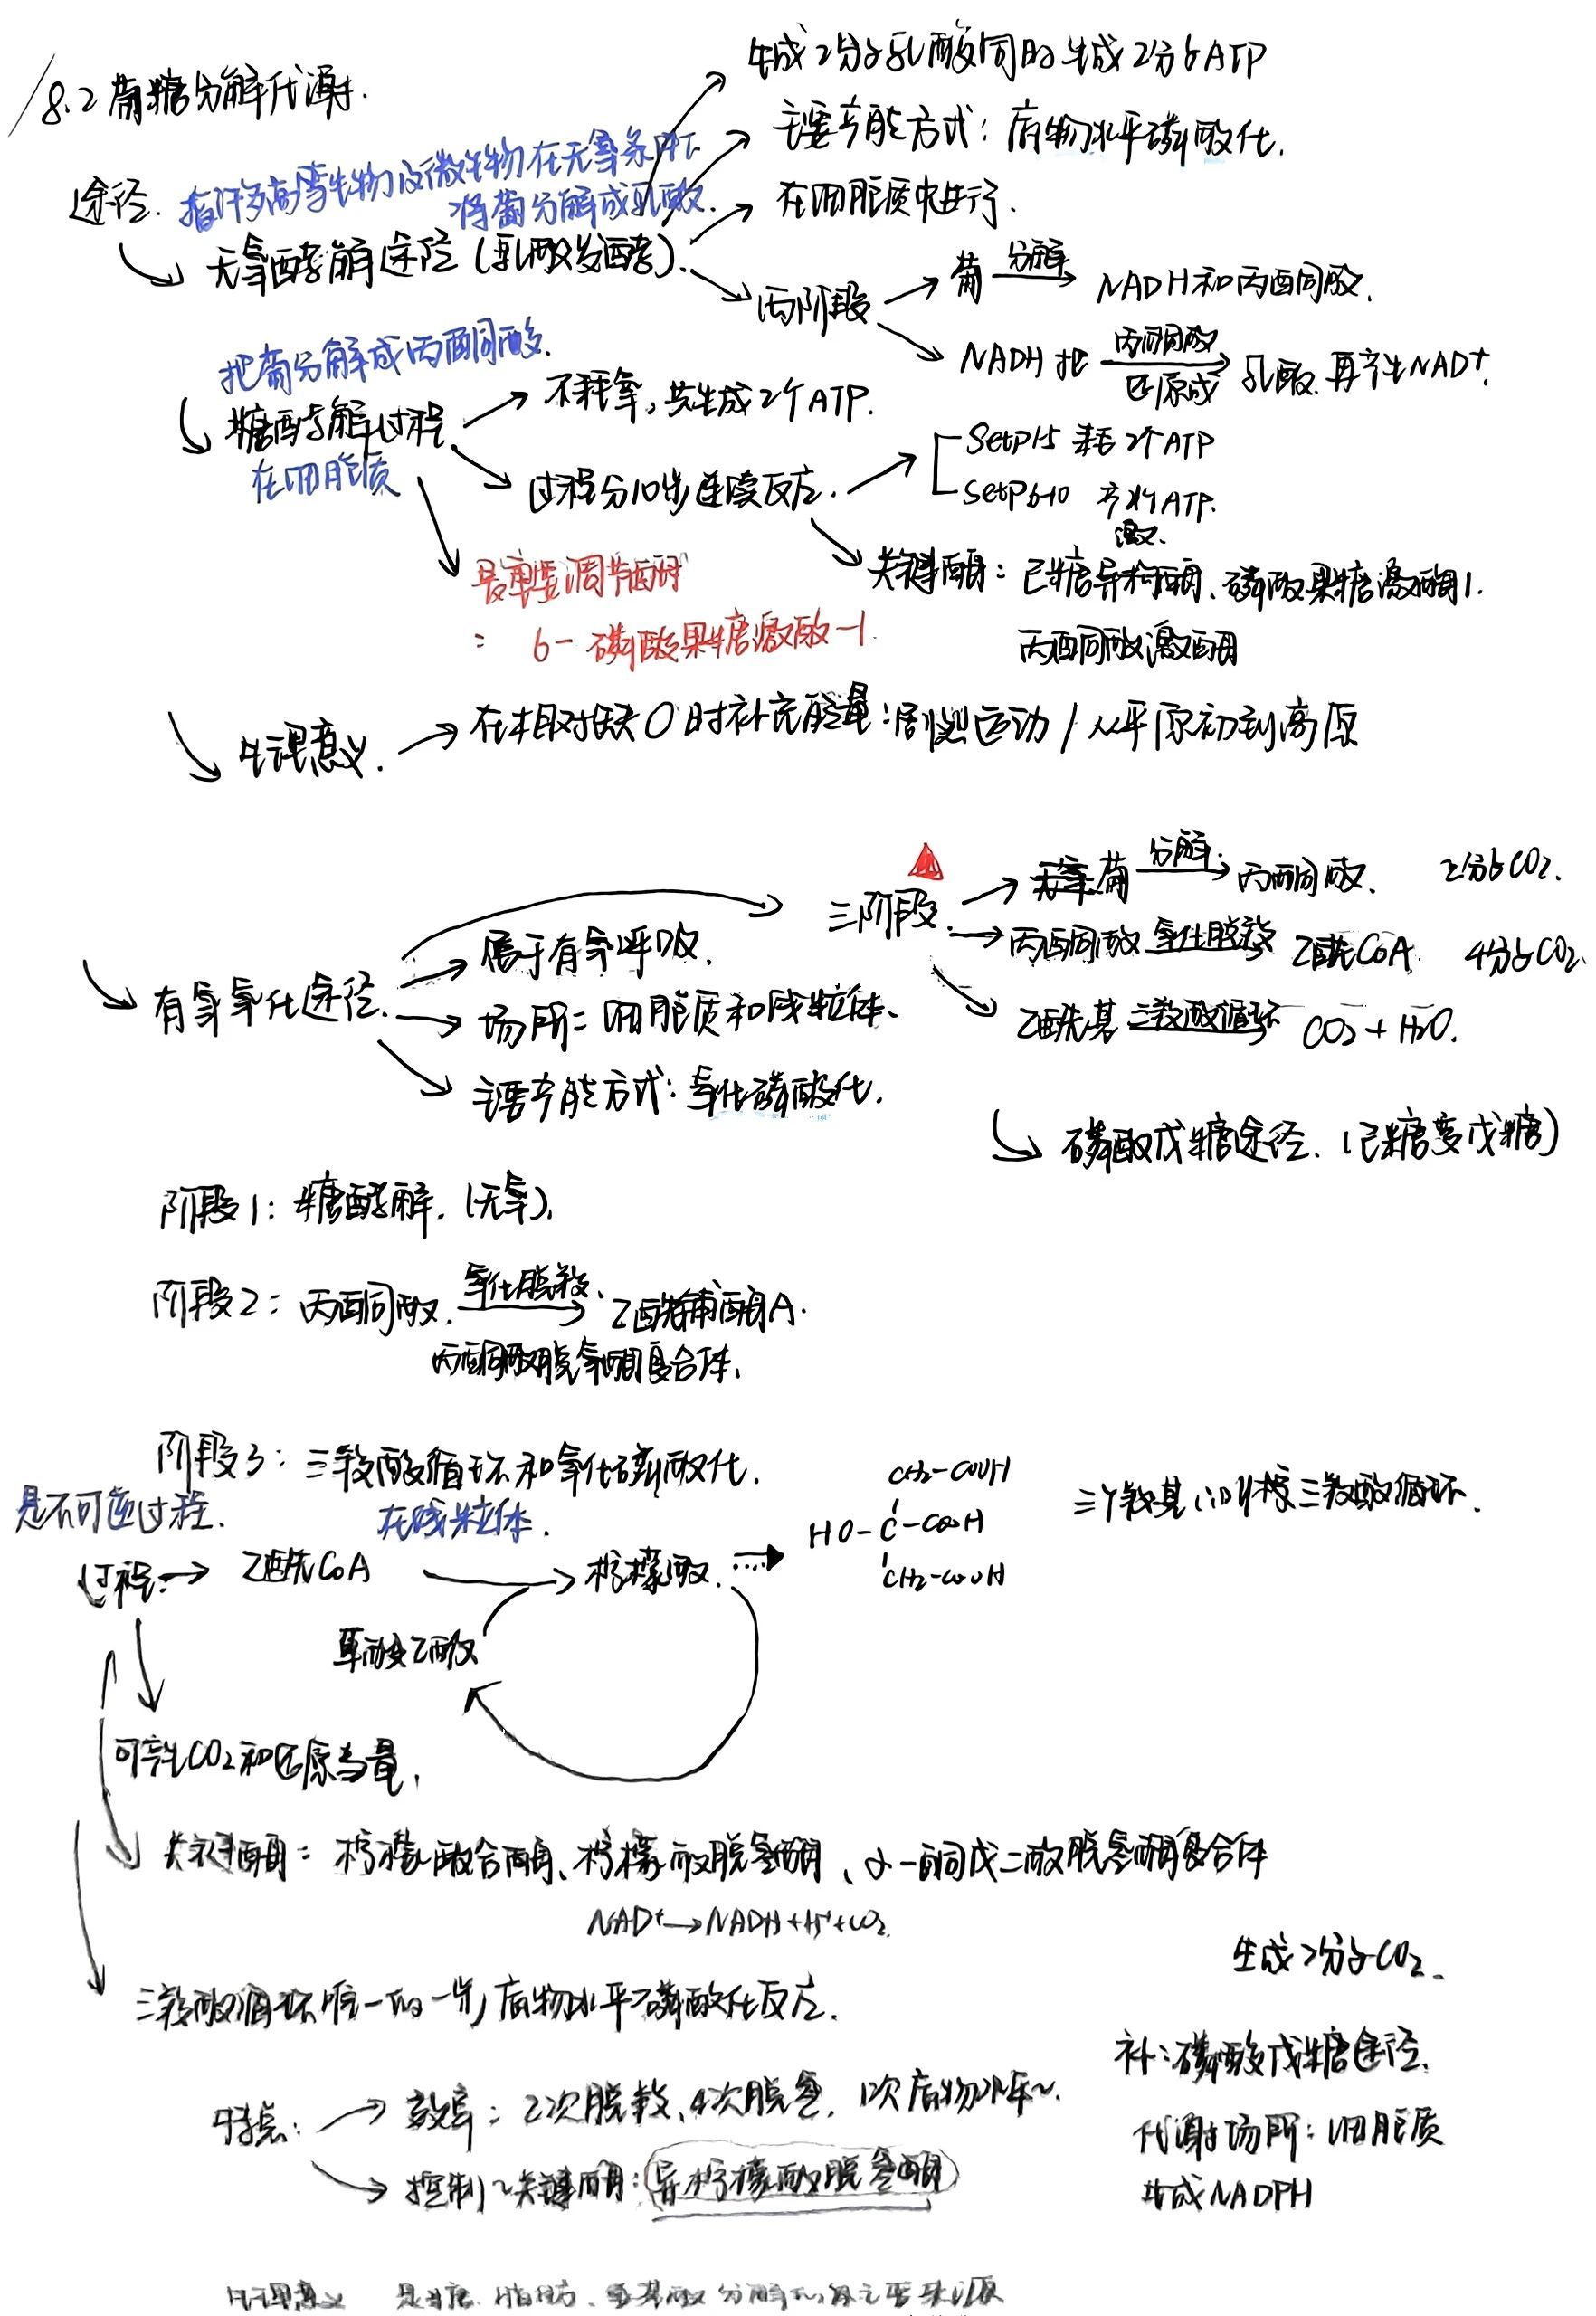 8.2 葡糖分解代谢.
途径. 指许多高等生物及微生物在无氧条件下
将葡分解成乳酸.
无氧酵解途径(乳酸发酵).
生成2分子乳酸同时生成2分子ATP
主要产能方式：底物水平磷酸化.
在细胞质中进行.
两阶段
葡 分解 NADH和丙酮酸.
NADH把 丙酮酸 还原成 乳酸.再产生NAD+.
把葡分解成丙酮酸.
糖酵解过程
在细胞质
不耗氧，共生成2个ATP.
过程分10步连续反应.
Setp1-5 耗2个ATP
Setp6-10 产4个ATP.
激
关键酶：己糖异构酶、磷酸果糖激酶1.
丙酮酸激酶
最重要调节酶
： 6-磷酸果糖激酸-1.
生理意义. 在相对缺O时补充能量：剧烈运动/从平原初到高原
有氧氧化途径.
属于有氧呼吸.
场所：细胞质和线粒体.
主要产能方式：氧化磷酸化.
三阶段.
葡 分解. 丙酮酸. 2分子CO2.
丙酮酸 氧化脱羧 乙酰CoA. 4分子CO2.
乙酰基 三羧酸循环 CO2+H2O.
磷酸戊糖途径.(己糖变戊糖)
阶段1：糖酵解.(无氧).
阶段2：丙酮酸. 氧化脱羧. 乙酰辅酶A.
丙酮酸脱氢酶复合体.
阶段3：三羧酸循环和氧化磷酸化.
是不可逆过程. 在线粒体.
过程： 乙酰CoA 柠檬酸.
草酰乙酸
CH2-COOH
HO-C-COOH
CH2-COOH
三个羧基∴叫 三羧酸循环.
可产生CO2和还原当量.
关键酶：柠檬酸合酶、柠檬酸脱氢酶、α-酮戊二酸脱氢酶复合体
NAD+→NADH+H+CO2.
三羧酸循环唯一的一步底物水平磷酸化反应.
生成2分子CO2.
特点： 效率：2次脱羧、4次脱氢.1次底物水平~.
控制~关键酶：异柠檬酸脱氢酶
补：磷酸戊糖途径.
代谢场所：细胞质
生成NADPH
生理意义 是糖.脂肪.氨基酸分解